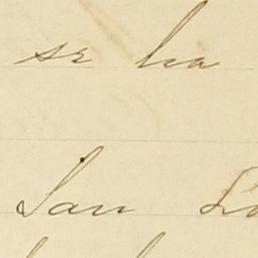 se ha
San